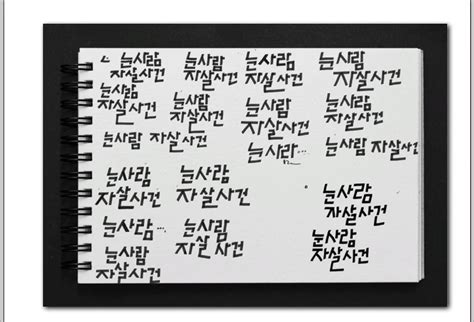 눈사람 눈사람 눈사람 눈사람
자살사건 자살사건 자살사건 자살사건
눈사람 눈사람 눈사람 눈사람
자살사건 자살사건 자살사건 자살사건
눈사람 자살사건 눈사람... 눈사람 자살사건
눈사람 눈사람
자살사건 자살사건 눈사람
자살사건
눈사람... 눈사람
자살사건 눈사람
자살사건
눈사람
자살사건